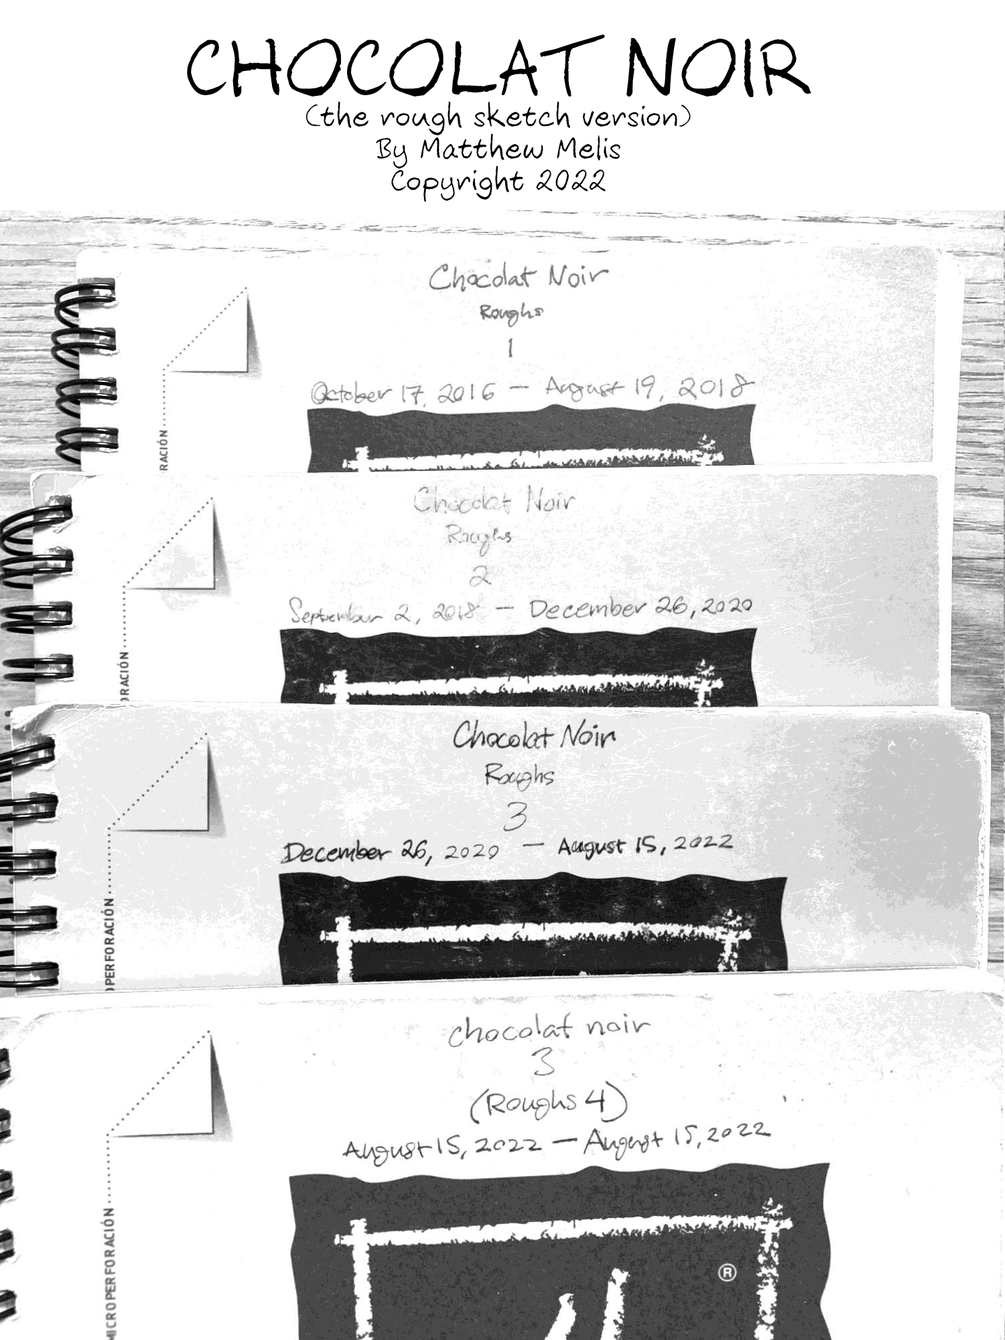 CHOCOLAT NOIR
(the rough sketch version)
By Matthew Melis
Copyright 2022
Chocolat Noir
Roughs
1
October 17, 2016 — August 19, 2018
RACIÓN
Chocolat Noir
Roughs
2
September 2, 2018 — December 26, 2020
ORACIÓN
Chocolat Noir
Roughs
3
December 26, 2020 — August 15, 2022
PERFORACIÓN
chocolat noir
3
(Roughs 4)
August 15, 2022 — August 15, 2022
MICROPERFORACIÓN
®